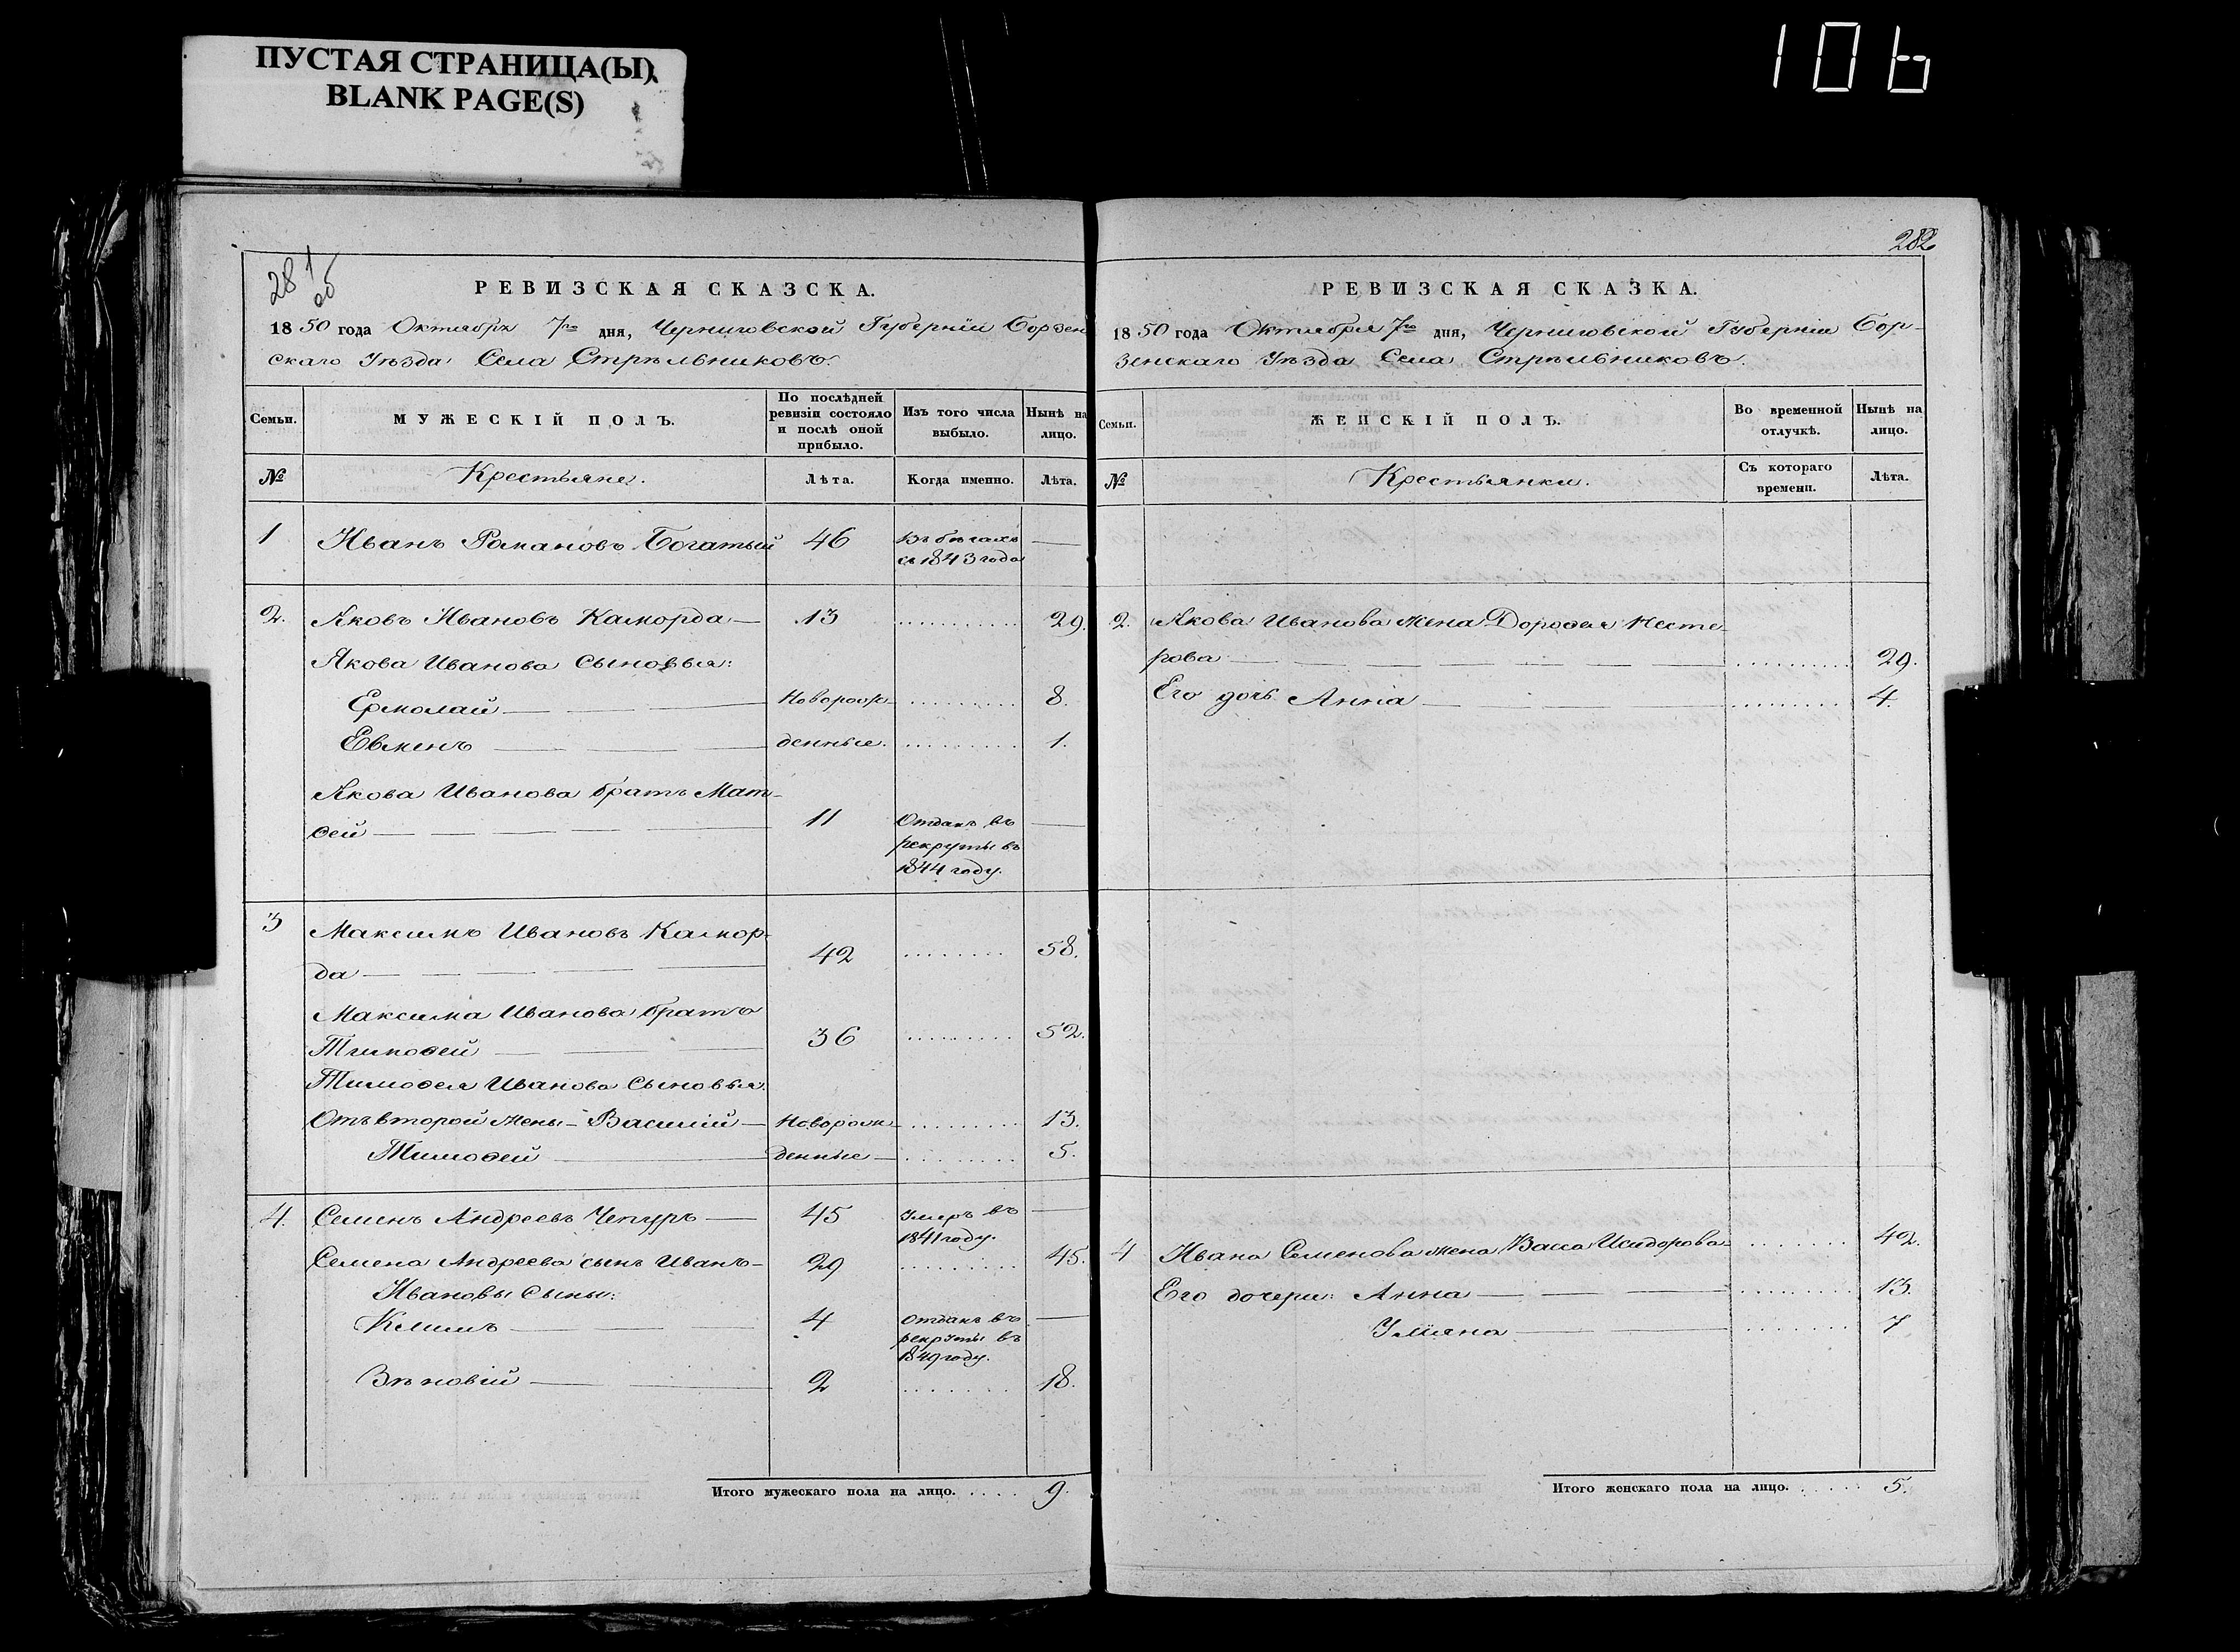 ПУСТАЯ СТРАНИЦА(Ы)
BLANK PAGE(S)
106
281
об
РЕВИЗСКАЯ СКАЗСКА.
1850 года Октября 7го дня, Черниговской Губерніи Борзен
скаго Уѣзда Села Стрѣльниковъ.
Семьи.
МУЖЕСКІЙ ПОЛЪ.
По послѣдней
ревизіи состояло
и послѣ оной
прибыло.
Изъ того числа
выбыло.
Нынѣ на
лицо.
№
Крестьяне.
Лѣта.
Когда именно.
Лѣта.
1 Иванъ Романовъ Богатый 46 Въ бѣгахъ —
съ 1843 года
2. Яковъ Ивановъ Каморда — 13 .......... 29.
Якова Иванова Сыновья:
Ермолай — — Новорож- .......... 8.
Евменъ — — денные. .......... 1.
Якова Иванова братъ Мат-
ѳей — — — — — 11 Отданъ въ —
рекруты въ
1844 году.
3 Максимъ Ивановъ Камор-
да — — — — — 42 ........ 58.
Максима Иванова братъ
Тимоѳей — — — 36 ......... 52.
Тимоѳея Иванова Сыновья
Отъ второй жены - Василій — Новорож- ......... 13.
Тимоѳей — денные — ......... 5.
4. Семенъ Андреевъ Чепуръ — 45 Умеръ въ —
1841 году.
Семена Андреева сынъ Иванъ - 29 ......... 45.
Ивановы Сыны:
Климъ — — 4 Отданъ въ —
рекруты въ
1849 году.
Зѣновій — — 2 ....... 18.
Итого мужескаго пола на лицо. .... 9.
282
РЕВИЗСКАЯ СКАЗКА.
1850 года Октября 7го дня, Черниговской Губерніи Бор-
зенскаго Уѣзда Села Стрѣльниковъ.
Семьи.
ЖЕНСКІЙ ПОЛЪ.
Во временной
отлучкѣ.
Нынѣ на
лицо.
№
Крестьянки.
Съ котораго
времени.
Лѣта.
2. Якова Иванова жена Дороѳея Несте-
рова — — — — — .......... 29.
Его дочь Анна — — — ......... 4.
4 Ивана Семенова жена Васса Исидорова ....... 42.
Его дочери: Анна — — — ........ 13.
Уліяна — — ........ 7
Итого женскаго пола на лицо. ..... 5.